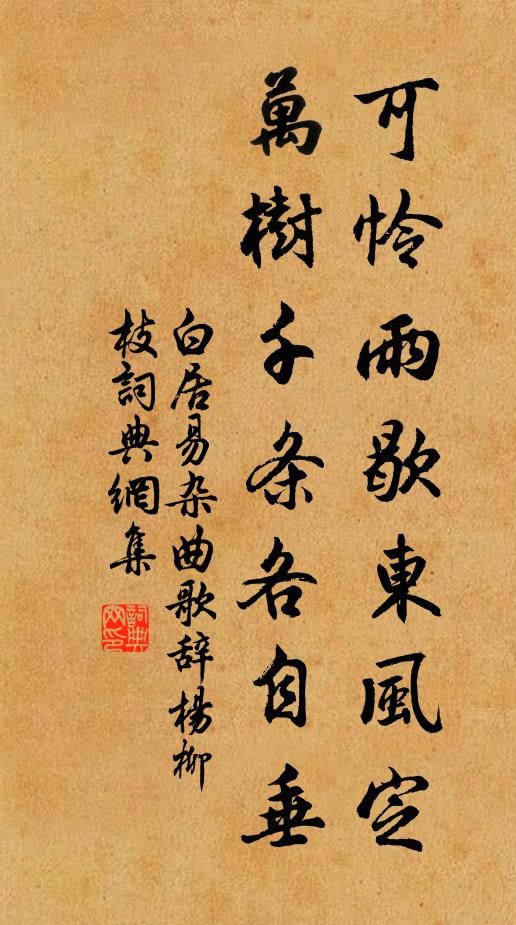 可怜雨歇東風定
萬樹千条各自垂
白居易杂曲歌辞楊柳
枝詞典網集
詞典
网印